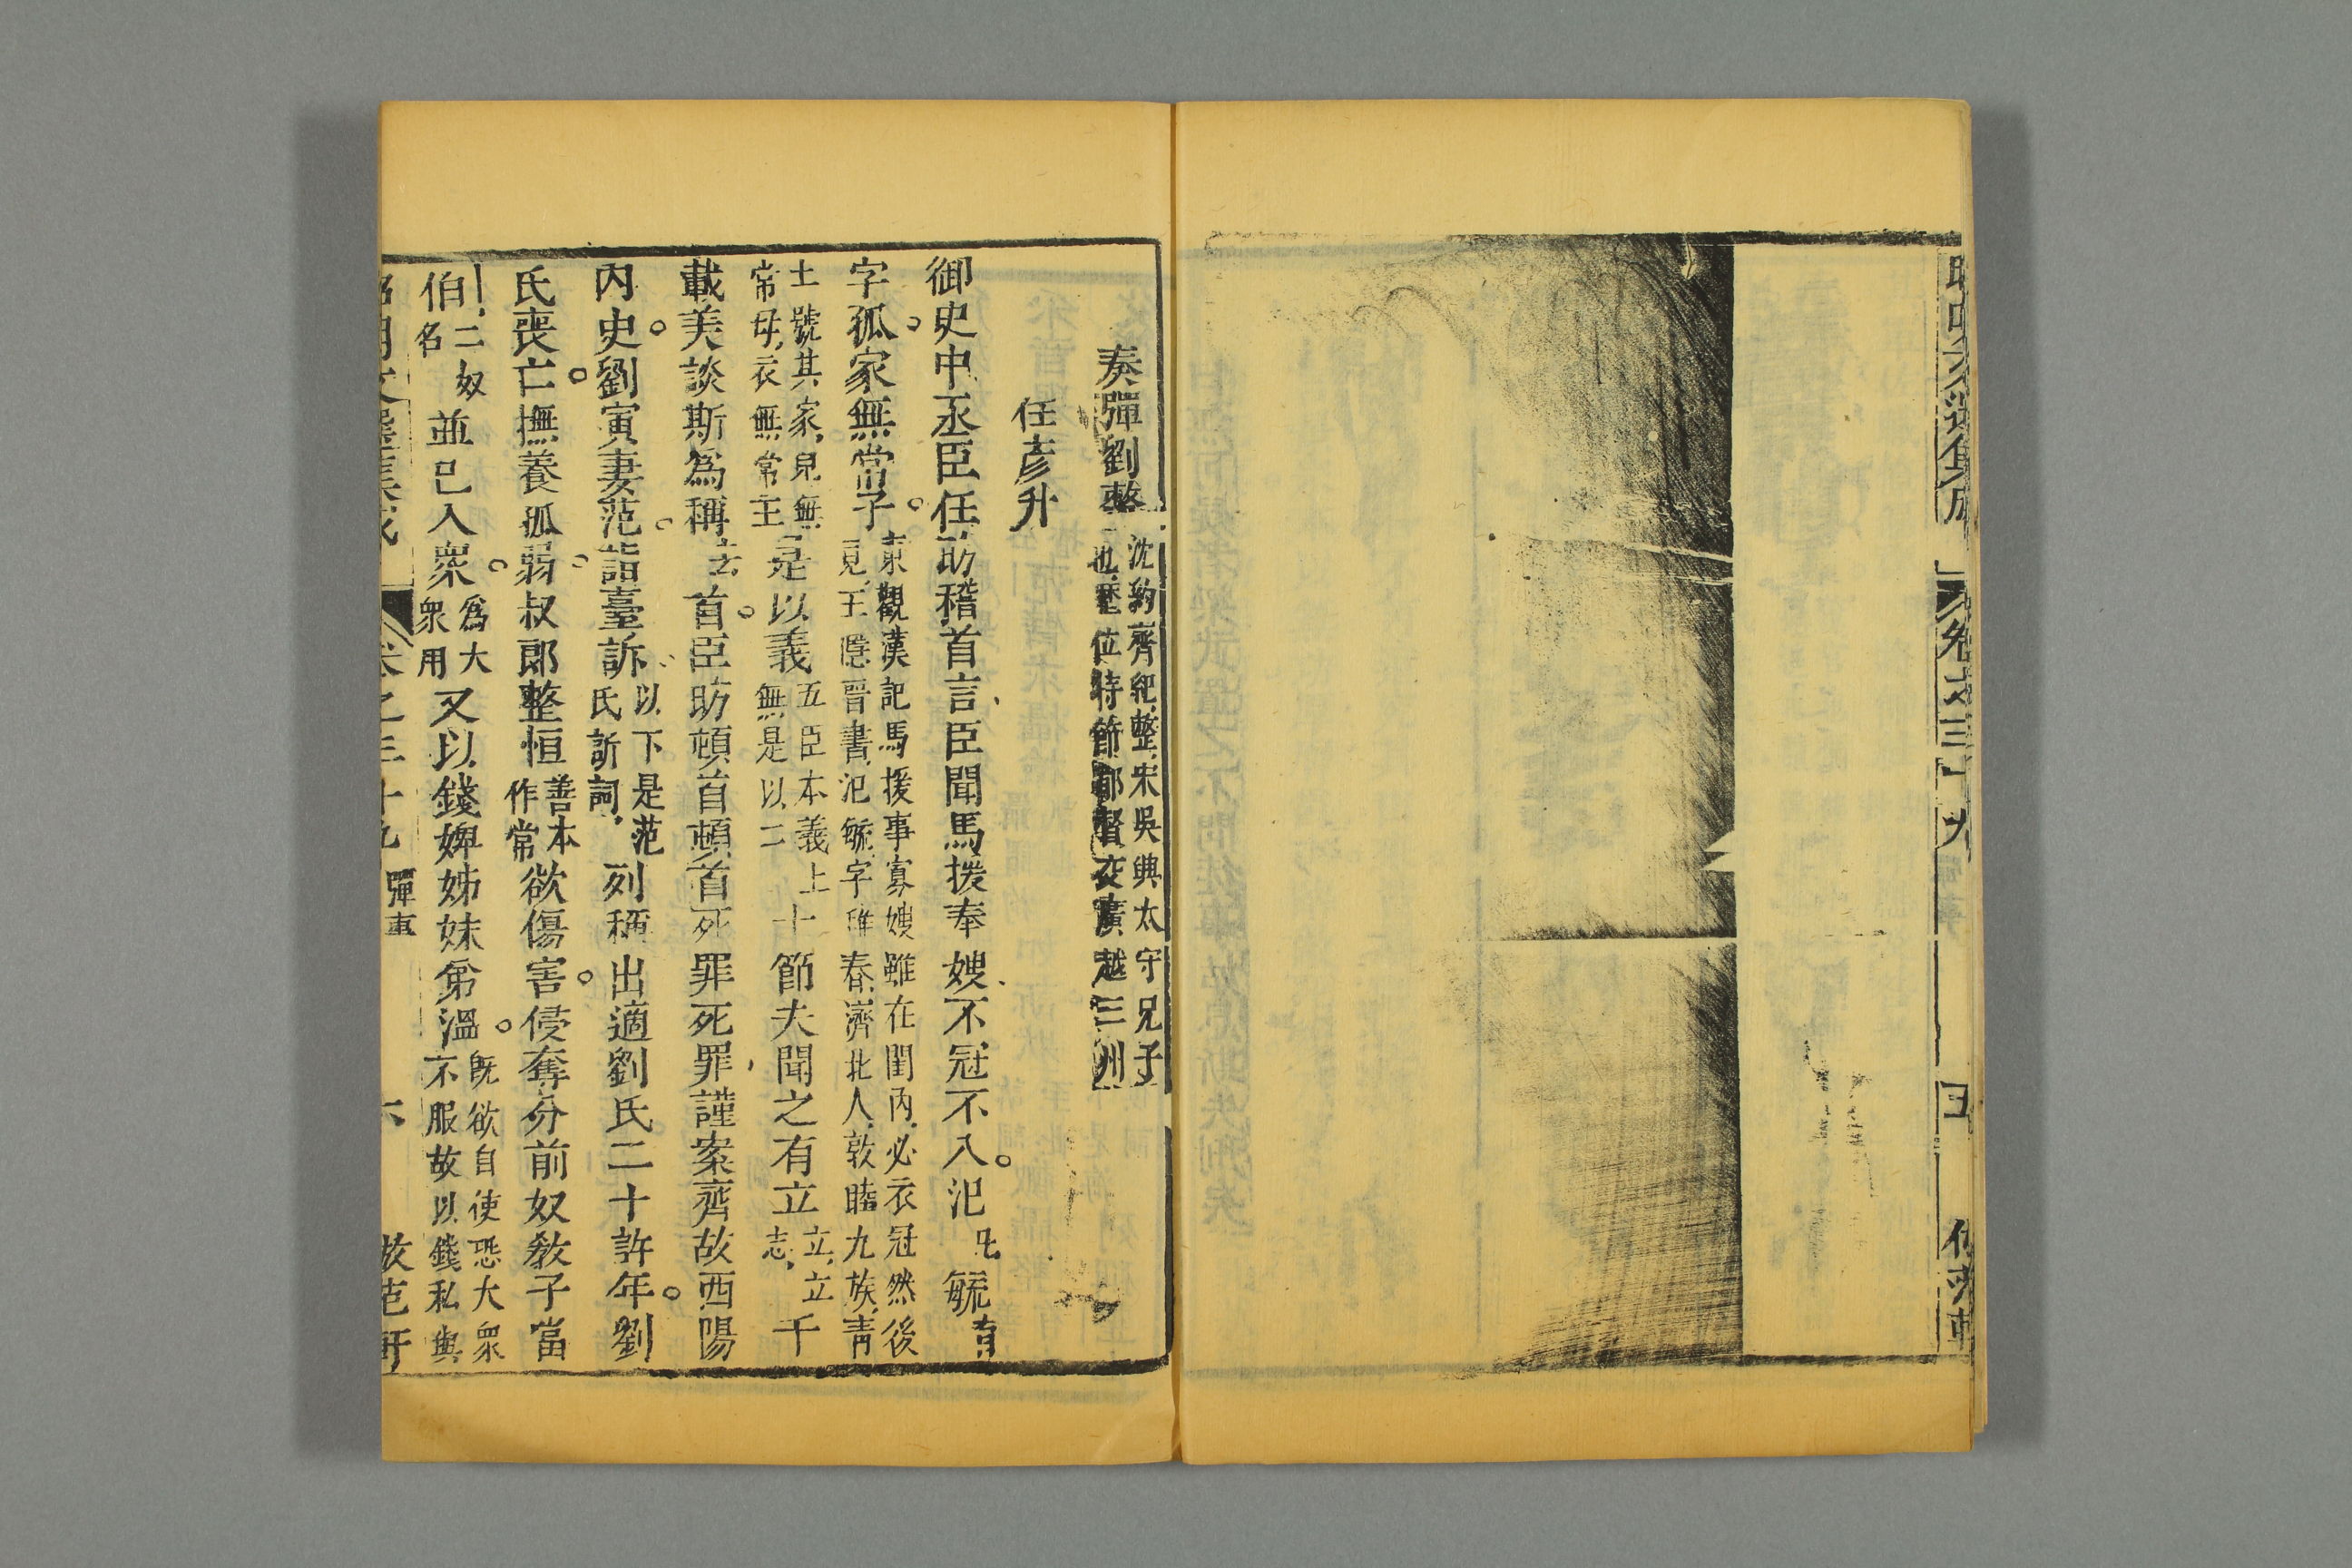 奏彈劉整
沈約齊紀整宋吳興太守兄子
也歷位持節都督交廣越三州
任彥升
御史中丞臣任昉稽首言臣聞馬援奉嫂不冠不入氾毓
字孤家無常子
東觀漢記馬援事寡嫂雖在閨內必衣冠然後
見王隱晉書氾毓字稚春濟北人敦睦九族青
土號其家兒無
常母衣無常主
是以義
五臣本義上
無是以二
士節夫聞之有立
立立
志
千
載美談斯為稱首臣昉頓首頓首死罪死罪謹案齊故西陽
內史劉寅妻范詣臺訴
以下是范
氏訴詞
列稱出適劉氏二十許年劉
氏喪亡撫養孤弱叔郎整恒
善本
作常
欲傷害侵奪分前奴教子當
伯
二奴
名
並已入衆
為大
衆用
又以錢婢姊妹弟溫
既欲自使恐大衆
不服故以錢私與
昭明文選集成
卷之三十九
彈事
六
倣范軒
昭明文選集成
卷之三十九
五
倣范軒